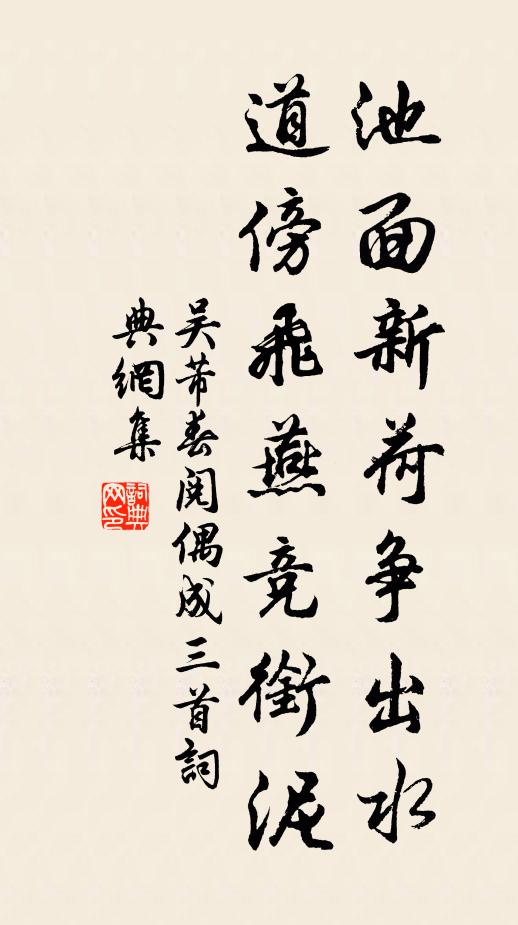 池面新荷争出水
道傍飛燕竞銜泥
吴芾春偶成三首詞
典網集
詞典网印